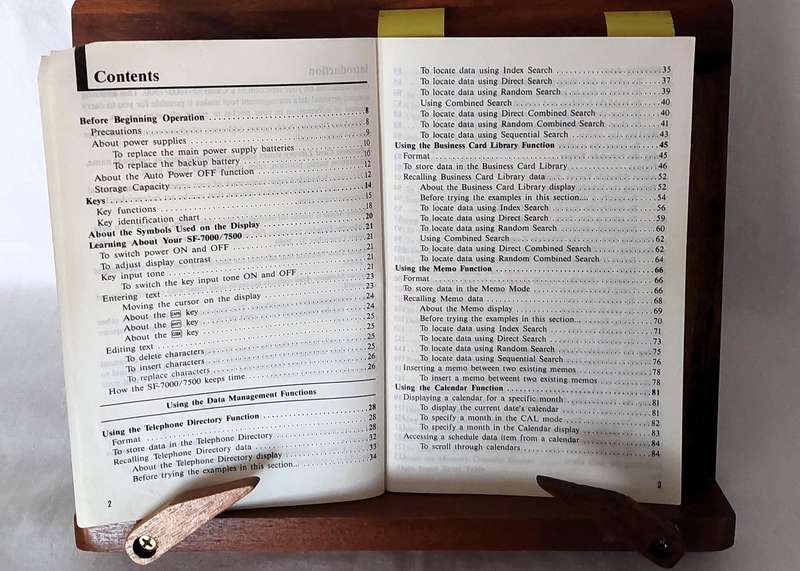 Contents
Before Beginning Operation ... 8
Precautions ... 8
About power supplies ... 9
To replace the main power supply batteries ... 10
To replace the backup battery ... 10
About the Auto Power OFF function ... 12
Storage Capacity ... 12
Keys ... 14
Key functions ... 15
Key identification chart ... 18
About the Symbols Used on the Display ... 20
Learning About Your SF-7000/7500 ... 21
To switch power ON and OFF ... 21
To adjust display contrast ... 21
Key input tone ... 21
To switch the key input tone ON and OFF ... 21
Entering text ... 23
Moving the cursor on the display ... 23
About the key ... 24
About the key ... 24
About the key ... 24
Editing text ... 25
To delete characters ... 25
To insert characters ... 25
To replace characters ... 26
How the SF-7000/7500 keeps time ... 26
Using the Data Management Functions
Using the Telephone Directory Function ... 28
Format ... 28
To store data in the Telephone Directory ... 28
Recalling Telephone Directory data ... 32
About the Telephone Directory display ... 33
Before trying the examples in this section... ... 34
2
To locate data using Index Search ... 35
To locate data using Direct Search ... 37
To locate data using Random Search ... 39
Using Combined Search ... 40
To locate data using Direct Combined Search ... 40
To locate data using Random Combined Search ... 41
To locate data using Sequential Search ... 43
Using the Business Card Library Function ... 45
Format ... 45
To store data in the Business Card Library ... 46
Recalling Business Card Library data ... 52
About the Business Card Library display ... 52
Before trying the examples in this section.... ... 54
To locate data using Index Search ... 56
To locate data using Direct Search ... 59
To locate data using Random Search ... 60
Using Combined Search ... 62
To locate data using Direct Combined Search ... 62
To locate data using Random Combined Search ... 64
Using the Memo Function ... 66
Format ... 66
To store data in the Memo Mode ... 66
Recalling Memo data ... 68
About the Memo display ... 69
Before trying the examples in this section... ... 70
To locate data using Index Search ... 71
To locate data using Direct Search ... 73
To locate data using Random Search ... 75
To locate data using Sequential Search ... 76
Inserting a memo between two existing memos ... 78
To insert a memo betweent two existing memos ... 78
Using the Calendar Function ... 81
Displaying a calendar for a specific month ... 81
To display the current date's calendar ... 81
To specify a month in the CAL mode ... 82
To specify a month in the Calendar display ... 83
Accessing a schedule data item from a calendar ... 84
To scroll through calendars ... 84
3